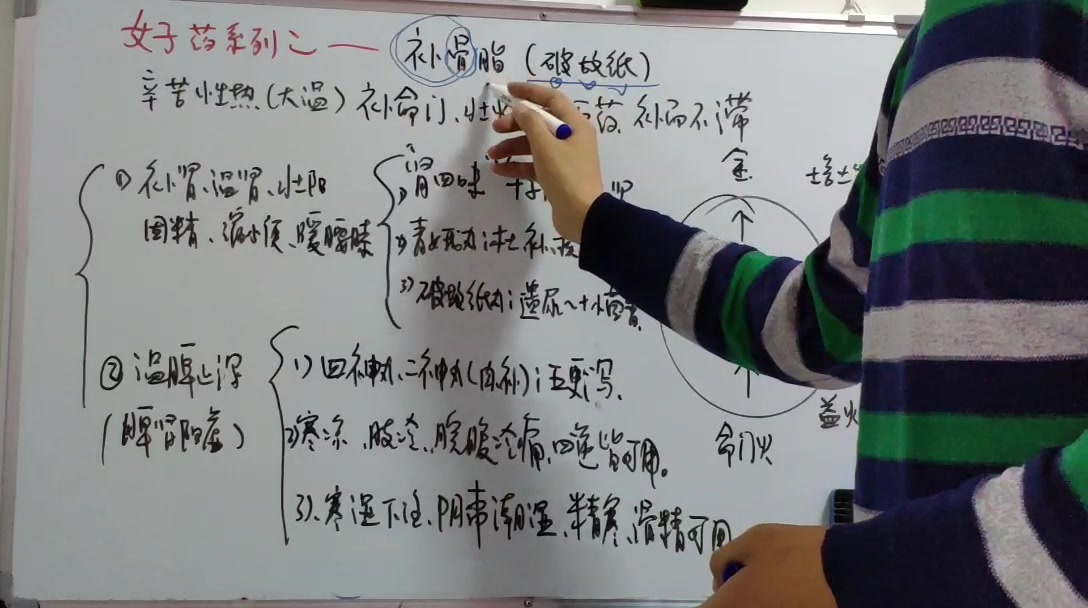 女子药系列之一 补骨脂（破故纸）
辛苦性热（大温）补命门、壮火 药 补而不滞
① 补肾、温肾、壮阳
固精、缩小便、暖腰膝
1) 肾四味
2) 青娥丸：杜仲、补
3) 破故纸丸：遗尿～+小茴香
② 温脾止泻
（脾肾阳虚）
1) 四神丸、二神丸（肉、补）：五更泻、
2) 寒凉、肢冷、脘腹冷痛、四逆皆可用。
3)、寒湿下注、阴带潮湿、精寒、滑精可用
金
命门火
益火